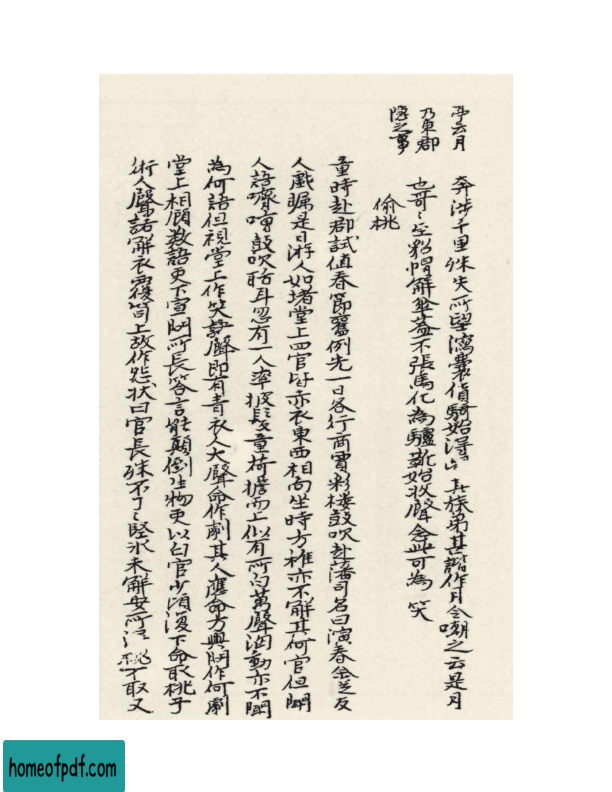 亭云月
乃東郡
隱之事
奔涉千里殊失所望瀉囊貨騎始得歸其族弟甚諧作月令嘲之云是月
也哥〻至貂帽解傘蓋不張馬化為驢靴始收聲念此可為笑
偷桃
童時赴郡試值春節舊例先一日各行商賈彩樓鼓吹赴藩司名曰演春余從友
人戲矚是日游人如堵堂上四官皆赤衣東西相向坐時方稚亦不解其何官但聞
人語嚌嘈鼓吹聒耳忽有一人率披髮童荷擔而上似有所白萬聲洶動亦不聞
為何語但視堂上作笑語聲即有青衣人大聲命作劇其人應命方興問作何劇
堂上相顧數語吏下宣問所長答言能顛倒生物吏以白官少頃復下命取桃子
術人聲諾解衣覆笥上故作怨狀曰官長殊不了〻堅氷未解安所得桃不取又
homeofpdf.com